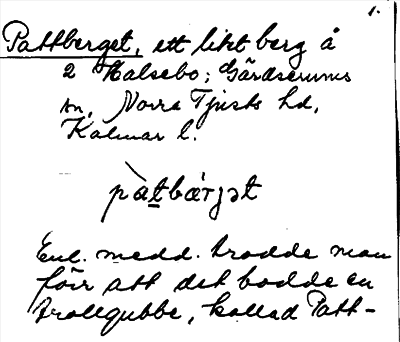 1.
Pattberget, ett litet berg å
2 Halsebo; Gärdserums
sn, Norra Tjusts hd,
Kalmar l.
pàt̠bár̡jət
Enl. medd. trodde man
förr att det bodde en
trollgubbe, kallad Patt-